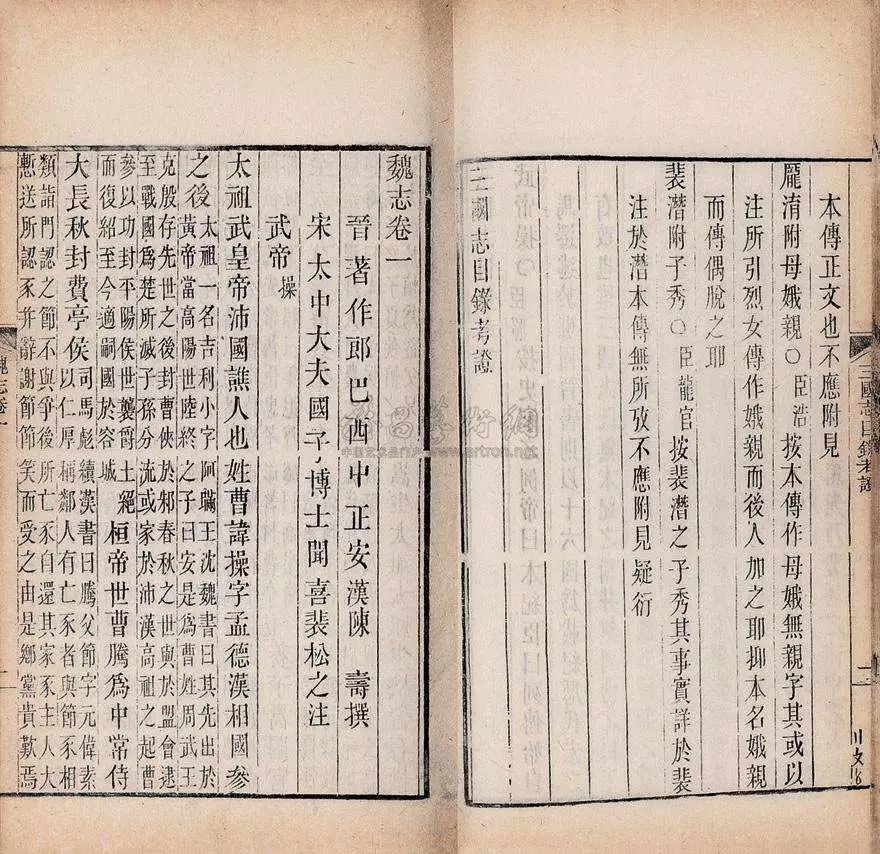 本傳正文也不應附見
龐淯附母娥親○臣浩按本傳作母娥無親字其或以
注所引烈女傳作娥親而後人加之耶抑本名娥親
而傳偶脫之耶
裴潛附子秀○臣龍官按裴潛之子秀其事實詳於裴
注於潛本傳無所攷不應附見疑衍
三國志目錄考證
三國志目錄考證
魏志卷一
晉著作郎巴西中正安漢陳壽撰
宋太中大夫國子博士聞喜裴松之注
武帝操
太祖武皇帝沛國譙人也姓曹諱操字孟德漢相國參
之後
太祖一名吉利小字阿瞞王沈魏書曰其先出於
黃帝當高陽世陸終之子曰安是爲曹姓周武王
克殷存先世之後封曹俠於邾春秋之世與於盟會逮
至戰國爲楚所滅子孫分流或家於沛漢高祖之起曹
參以功封平陽侯世襲爵土絕
而復紹至今適嗣國於容城
桓帝世曹騰爲中常侍
大長秋封費亭侯
司馬彪續漢書曰騰父節字元偉素
以仁厚稱鄰人有亡豕者與節豕相
類詣門認之節不與爭後所亡豕自還其家豕主人大
慙送所認豕并辭謝節節笑而受之由是鄉黨貴歎焉
魏志卷一